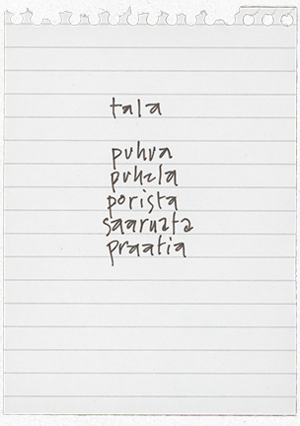 tala
puhua
puhela
porista
saarnata
praatia